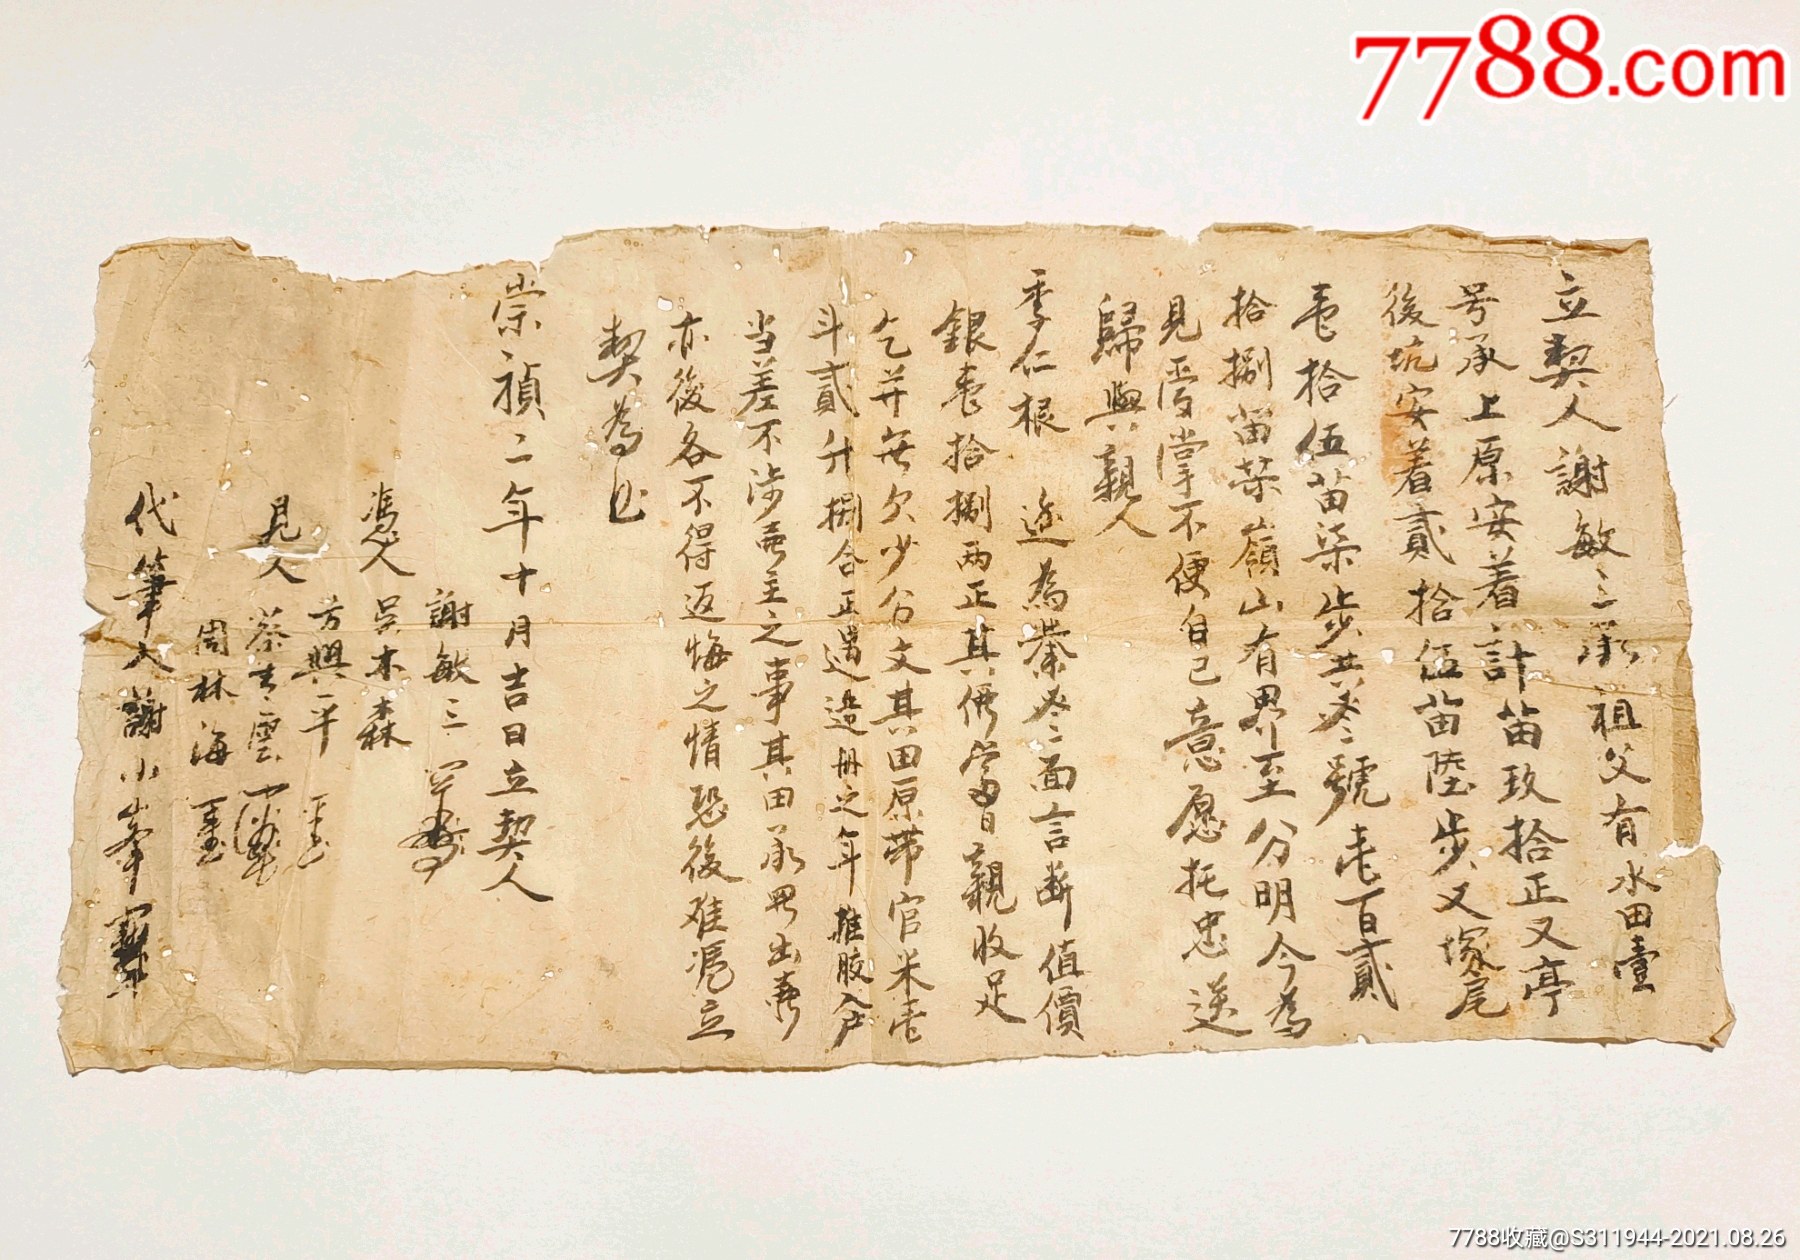 7788.com
立契人謝敏三承祖父有水田壹
号承上原安着計苗玖拾正又亭
後坑安着貳拾伍苗陸步又塚尾
壱拾伍苗柒步共叁號壱百貳
拾捌苗柒嶺山有界至分明今為
見管掌不便自己意愿托忠送
歸與親人
季仁根 近為業叁面言断值價
銀壱拾捌两正其價當日親收足
乞并無欠少分文其田原带官米壱
斗貳升捌合正遇造册之年推收入户
当差不涉賣主之事其田承買出賣
亦後各不得返悔之情恐後难凴立
契為照
崇禎二年十月吉日立契人
謝敏三
凴人 吴木森
方興平
見人 蔡吉雲
周林海
代筆人謝小峯
7788收藏@S311944-2021.08.26